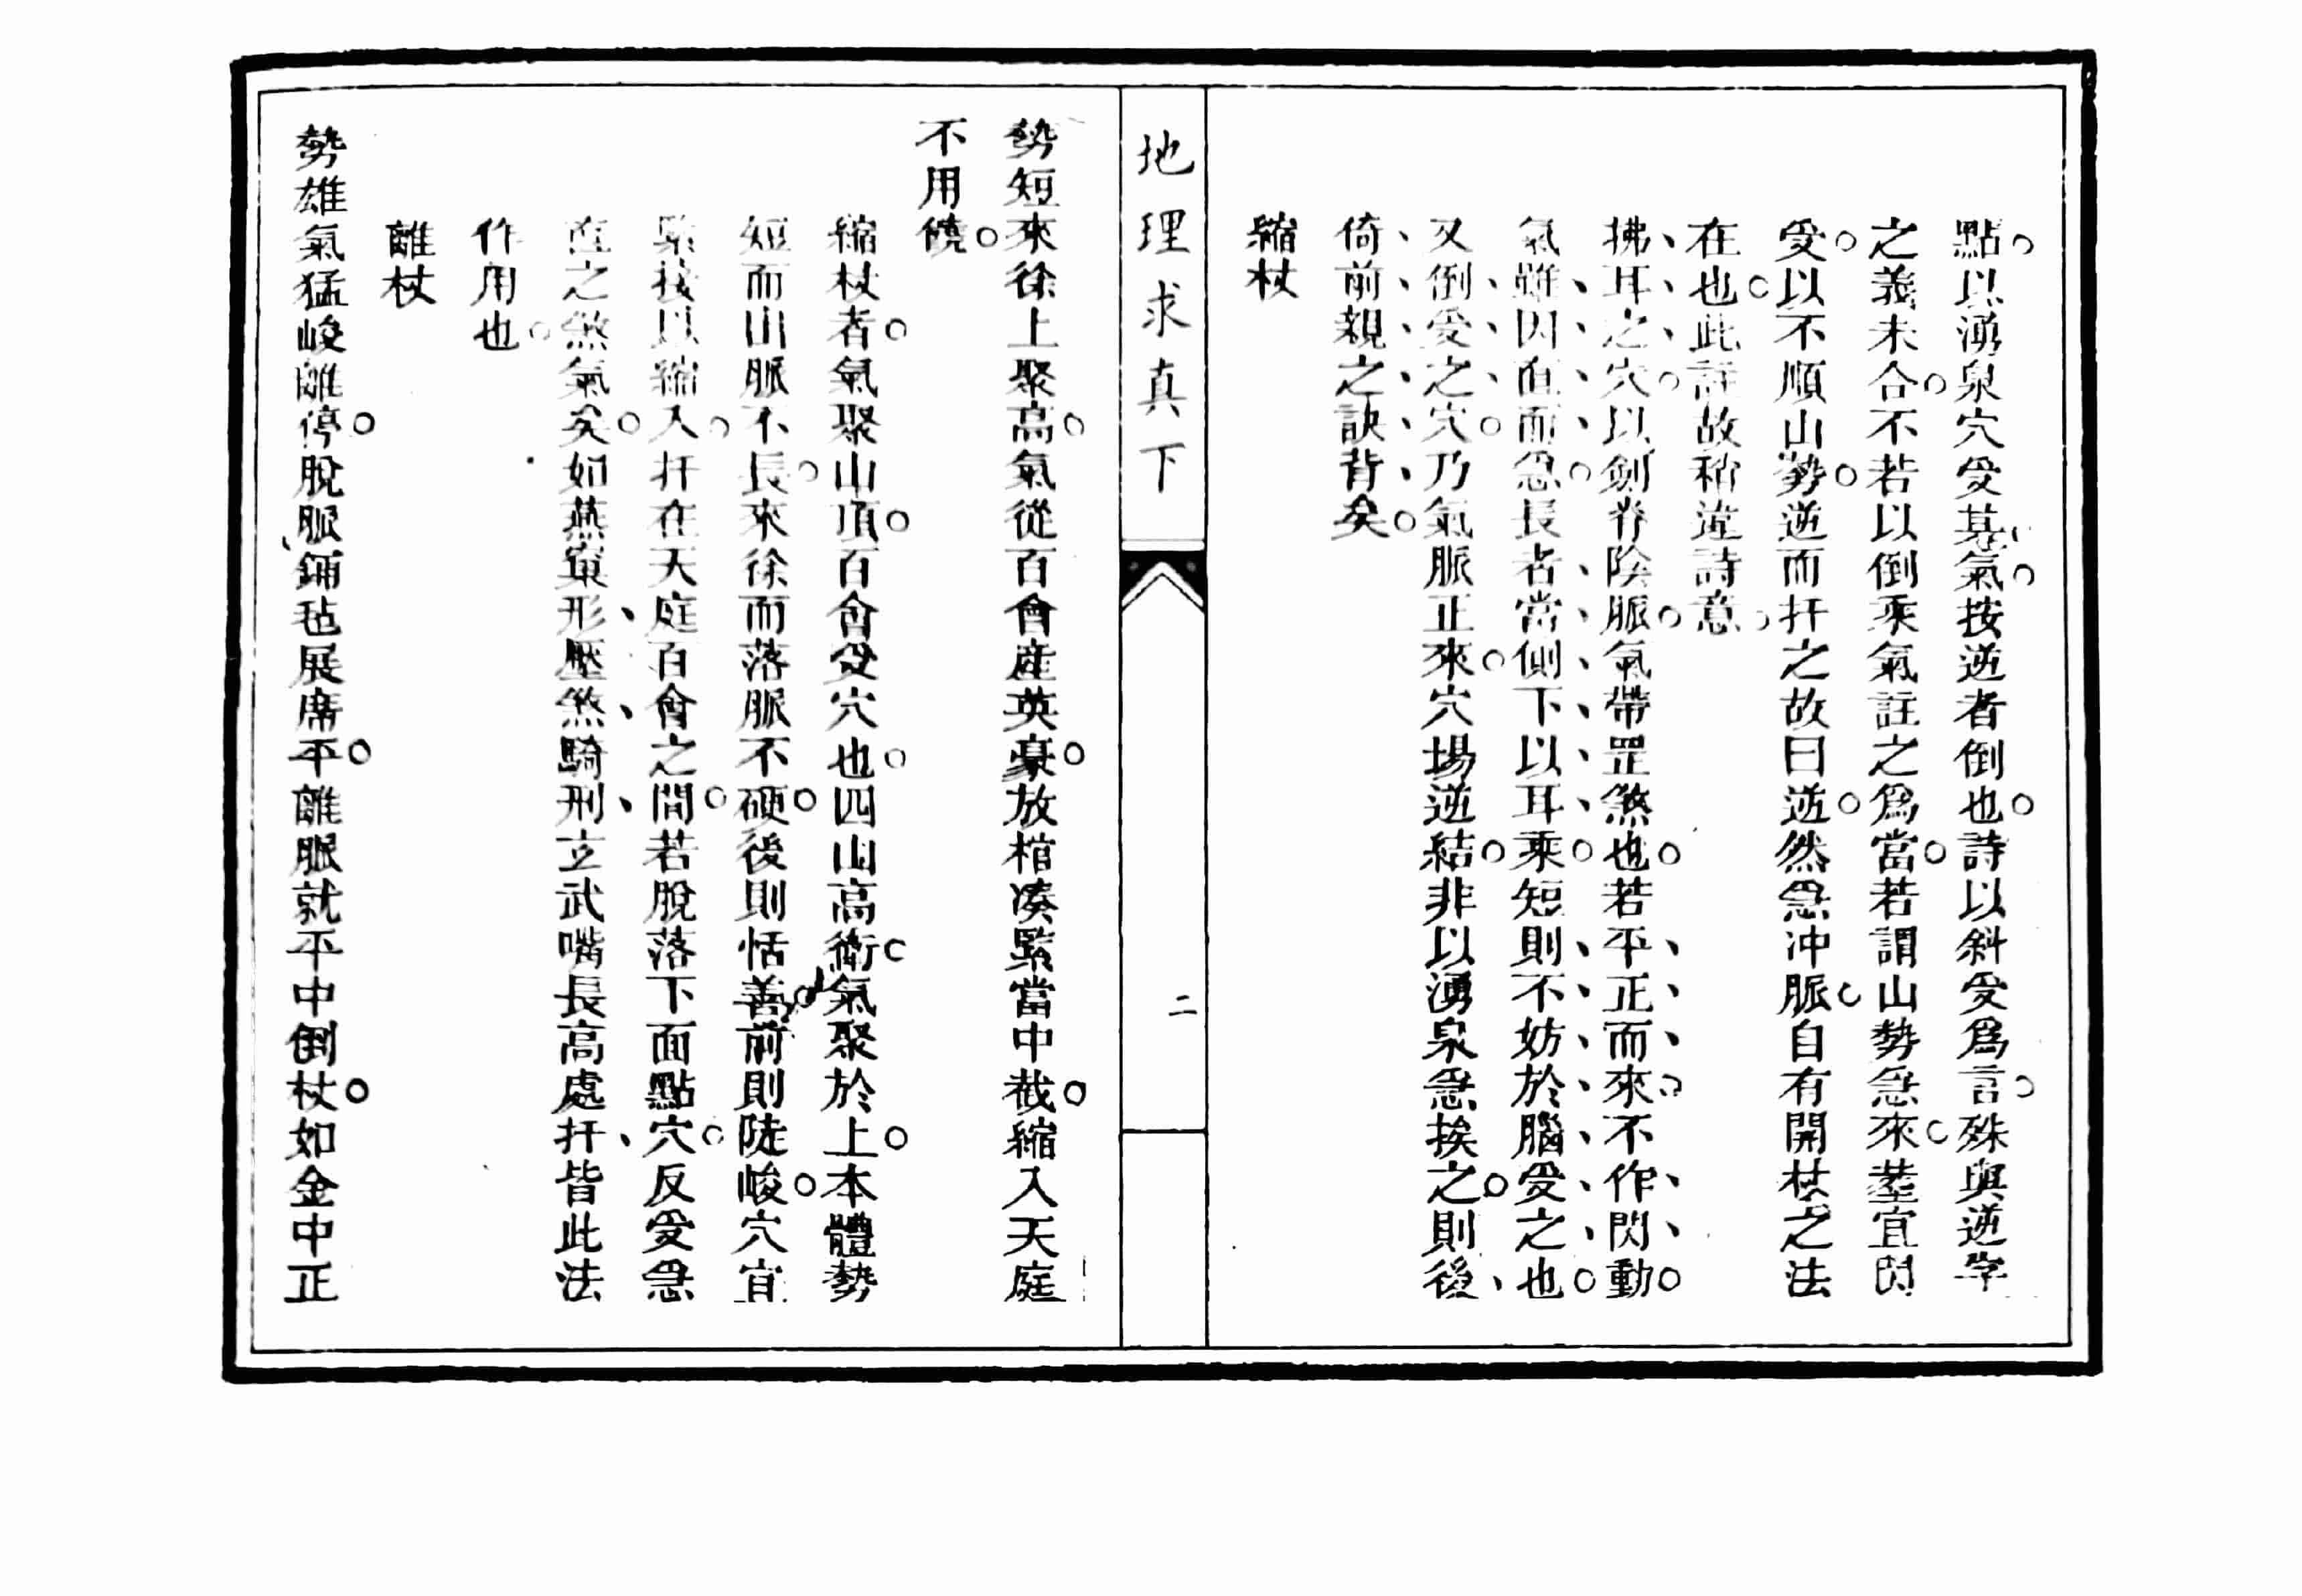 點以湧泉穴受其氣按逆者倒也詩以斜受爲言殊與逆字
之義未合不若以倒乘氣註之爲當若謂山勢急來塟宜閃
受以不順山勢逆而扦之故曰逆然急冲脈自有開杖之法
在也此註故稍違詩意
拂耳之穴以劍脊陰脈氣帶罡煞也若平正而來不作閃動
氣雖因直而急長者當側下以耳乘短則不妨於腦受之也
又倒受之穴乃氣脈正來穴場逆結非以湧泉急挨之則後
倚前親之訣背矣
縮杖
地理求真下
二
勢短來徐上聚高氣從百會産英豪放棺凑緊當中截縮入天庭
不用饒
縮杖者氣聚山頂百會受穴也四山高衛氣聚於上本體勢
短而山脈不長來徐而落脈不硬後則恬善前則陡峻穴宜
緊挨以縮入扦在天庭百會之間若脫落下面點穴反受急
直之煞氣矣如燕窠形壓煞騎刑立武嘴長高處扦皆此法
作用也
離杖
勢雄氣猛峻離停脫脈鋪毡展席平離脈就平中倒杖如金中正